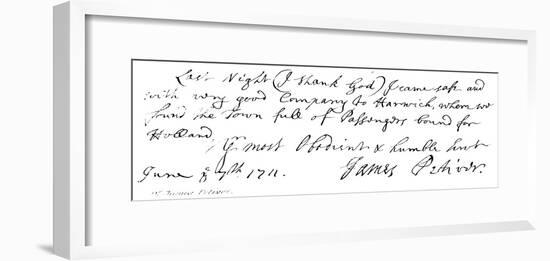 Last Night (I thank God) I came safe and
with very good Company to Harwich, where we
found the Town full of Passengers bound for
Holland
Yr most Obedient & humble Servt
June ye 7th 1711. James Petiver.
of James Petiver.